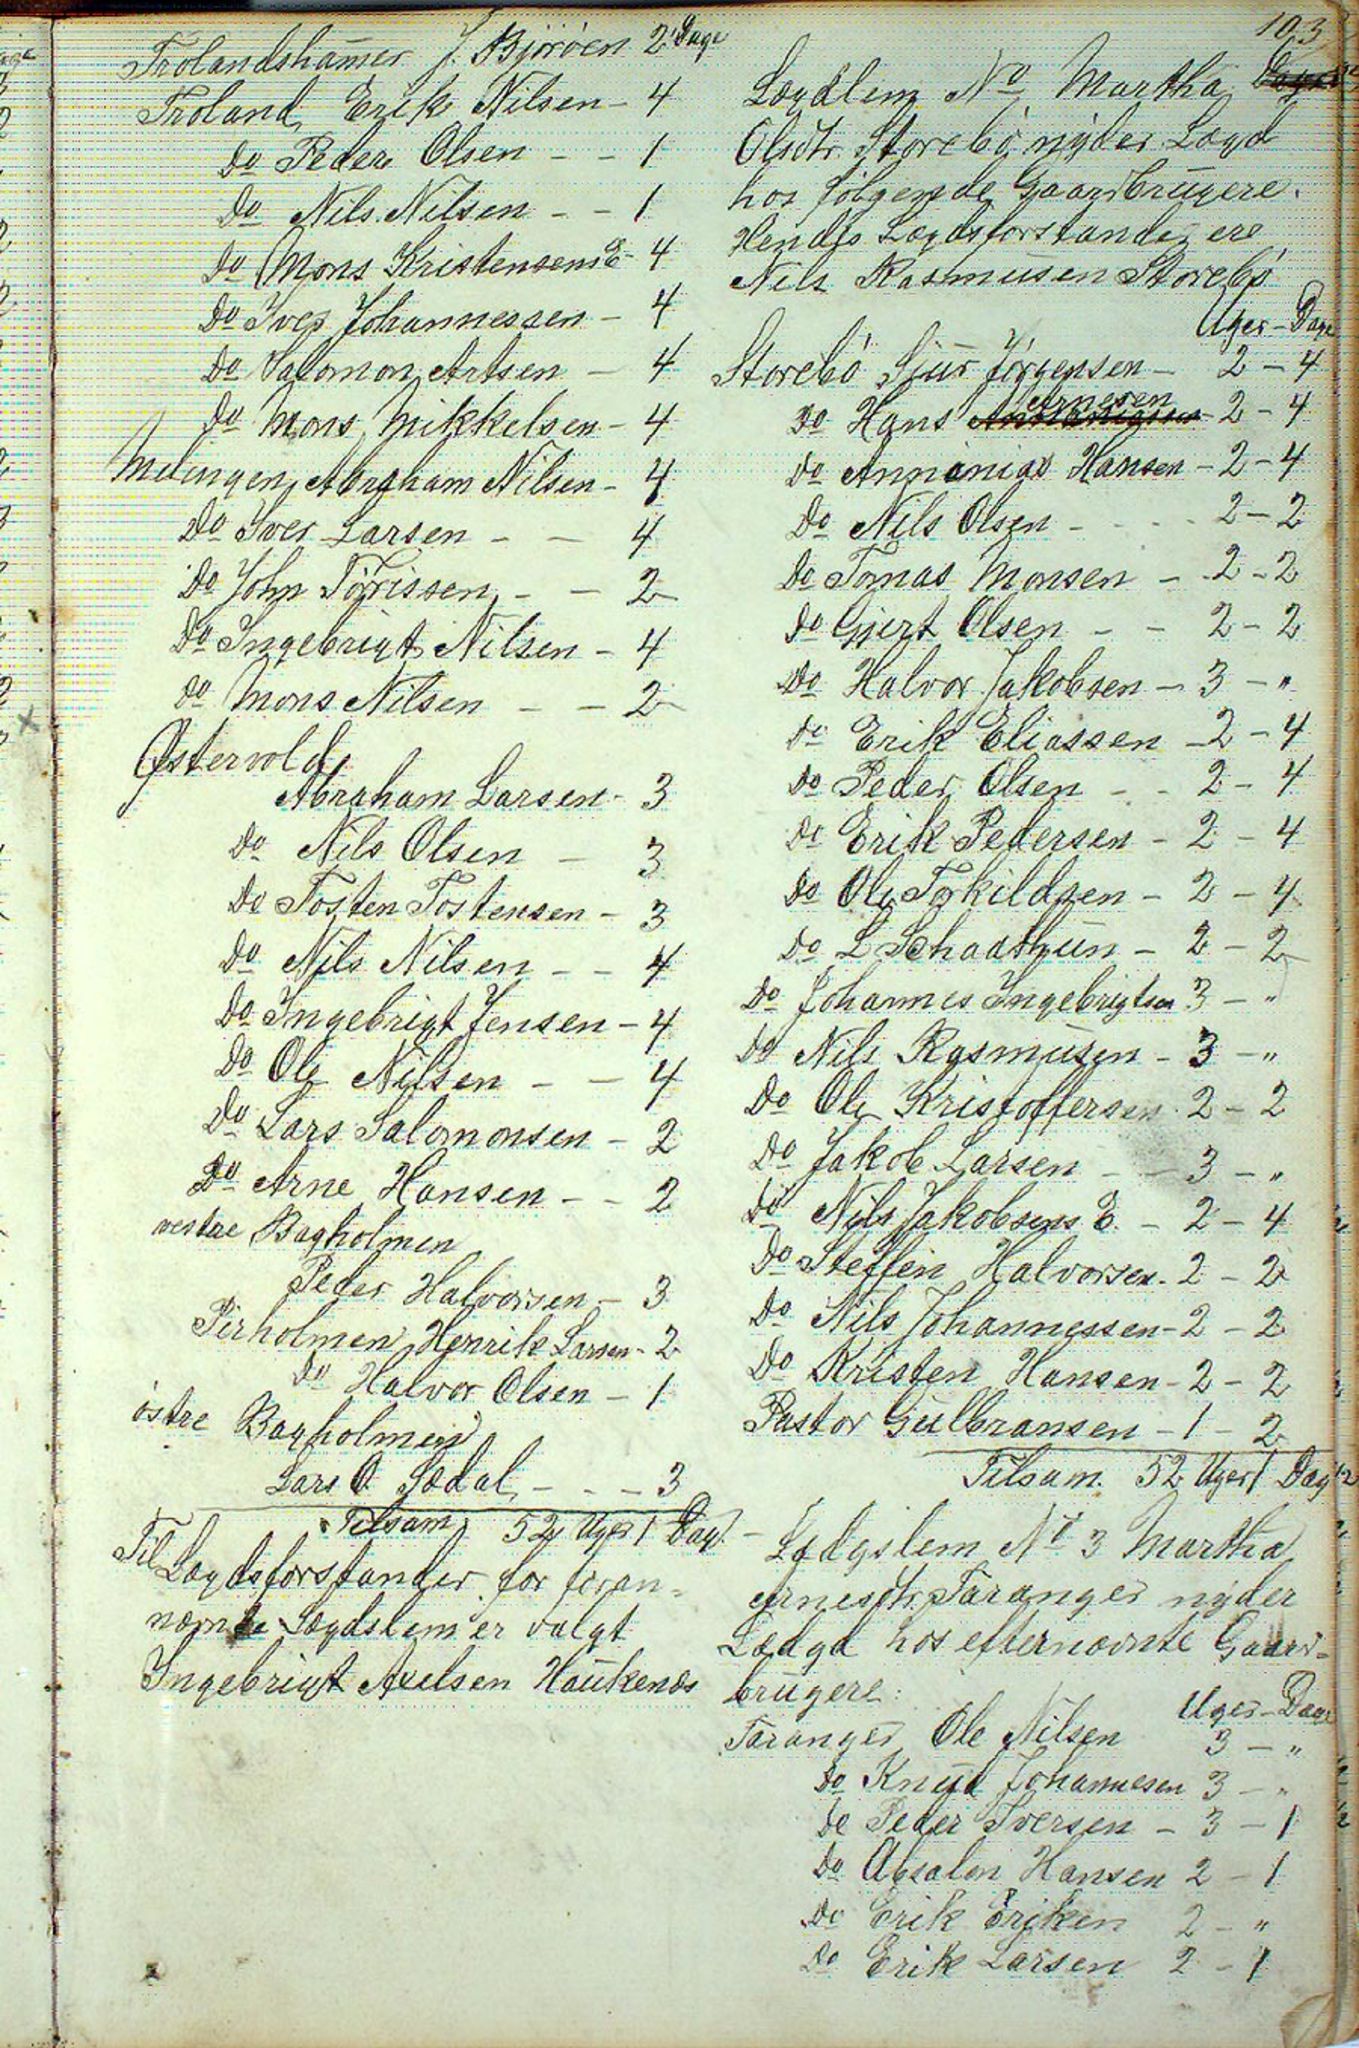 103
Trolandshamer J. Bjoröen 2 Dage
Troland, Erik Nilsen – 4
Do Peder Olsen – – 1
Do Nils Nilsen – – 1
Do Mons Kristensens E – 4
Do Iver Johannessen – 4
Do Salomon Artsen – 4
Do Mons Mikkelsen – 4
Melingen, Abraham Nilsen – 4
Do Iver Larsen – – 4
Do John Törissen – – 2
Do Ingebrigt Nilsen – 4
Do Mons Nilsen – – 2
Østervold
Abraham Larsen – 3
Do Nils Olsen – 3
Do Tosten Tostensen – 3
Do Nils Nilsen – – 4
Do Ingebrigt Jensen – 4
Do Ole Nilsen – – 4
Do Lars Salomonsen – 2
Do Arne Hansen – – 2
vestre Bagholmen
Peder Halvorsen – 3
Pirholmen Henrik Larsen – 2
Do Halvor Olsen – 1
östre Bagholmen
Lars O. Sædal – – – 3
Tilsam 52 Uger 1 Dag.
Til Lægdsforstander for foran-
nævnte Lægdslem er valgt
Ingebrigt Axelsen Haukenæs
Lægdlem No Martha
Olsdtr. Storebö nyder Lægd
hos følgende Gaardbrugere.
Hendes Lægdsforstander ere
Nils Rasmusen Storebö
Uger – Dage
Storebö Sjur Jörgensen – 2 – 4
Do Hans Arnesen – 2 – 4
Do Annanias Hansen – 2 – 4
Do Nils Olsen – – – 2 – 2
Do Tomas Monsen – 2 – 2
Do Gjert Olsen – – 2 – 2
Do Halvor Jakobsen – 3 – "
Do Erik Eliassen – 2 – 4
Do Peder Olsen – – 2 – 4
Do Erik Pedersen – 2 – 4
Do Ole Torkildsen – 2 – 4
Do L Schaathun – 2 – 2
Do Johannes Ingebrigtsen 3 – "
Do Nils Rasmusen – 3 – "
Do Ole Kristoffersen 2 – 2
Do Jakob Larsen – – 3 – "
Do Nils Jakobsens E. – 2 – 4
Do Steffen Halvorsen – 2 – 2
Do Nils Johannessen – 2 – 2
Do Kristen Hansen – 2 – 2
Pastor Gulbransen – 1 – 2
Tilsam. 52 Uger 1 Dag
Lædgslem No 3 Martha
Arnesdtr. Taranger nyder
Lædgd hos efternævnte Gaard-
brugere:
Uger – Dage
Taranger Ole Nilsen 3 – "
Do Knud Johannesen 3 – "
Do Peder Iversen – 3 – 1
Do Absalon Hansen 2 – 1
Do Erik Eriken 2 – "
Do Erik Larsen 2 – 1